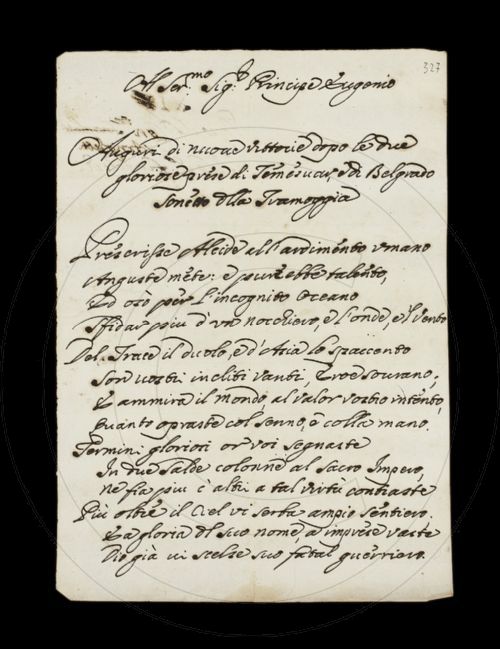 327
Al Ser.mo Sig.r Principe Eugenio
Auguri di nuove vittorie dopo le due
gloriose prese di Temesuar, e di Belgrado
Sonetto dlla Tramoggia
Prescrisse Alcide all'ardimento umano
Anguste mete: e pur' ebbe talento,
Ed osò per l'incognito Oceano
Sfidar piu d'un nocchiero, e l'onde, e 'l vento
Del Trace il duolo, e d'Asia lo spavento
Son vostri incliti vanti, Eroe sourano;
E ammira il mondo al valor vostro intento,
Quanto opraste col senno, e colla mano.
Termini gloriosi or voi segnaste
In due salde colonne al Sacro Impero,
ne fia piu ch'altri a tal virtù contraste
Più oltre il Ciel vi serba ampio sentiero.
E a gloria dl suo nome, a imprese vaste
Dio già vi scelse suo fatal guerriero.